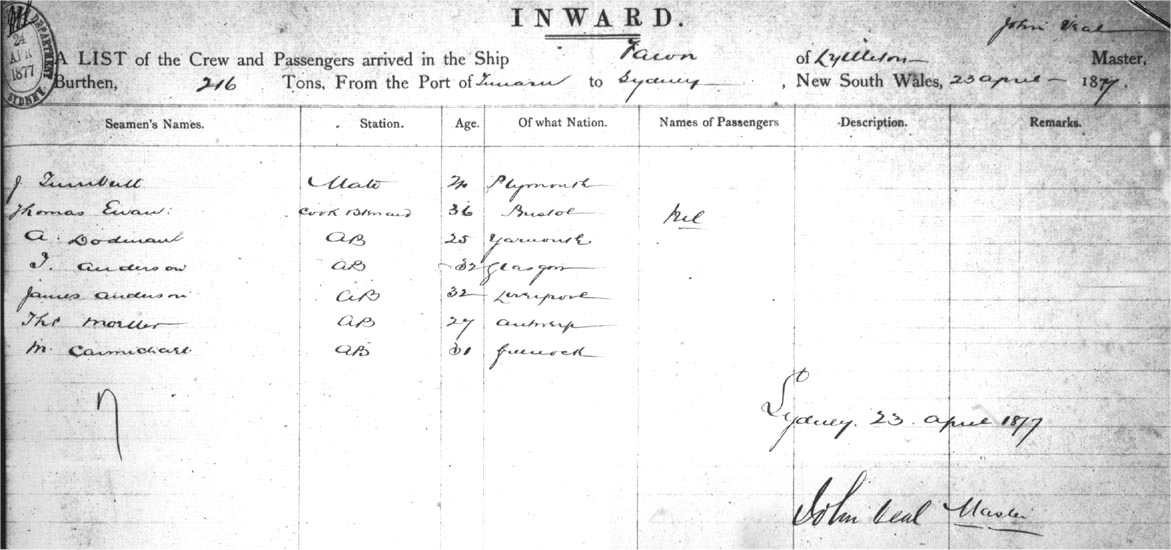 INWARD.
John Veal
A LIST of the Crew and Passengers arrived in the Ship Fawn of Lyttleton Master,
Burthen, 216 Tons, From the Port of Timaru to Sydney, New South Wales, 23 april 1877.
DEPARTMENT
24
APR
1877
SYDNEY
Seamen's Names. Station. Age. Of what Nation. Names of Passengers Description. Remarks.
J Turnbull Mate Plymouth
Thomas Evans 36 Bristol Nil
A. AB 25 Yarmouth
J. anderson AB 32 Glasgow
James anderson AB 32 Liverpool
AB 27 antwerp
M. Carmichael AB 31 Greenock
7
Sydney. 23. april 1877
John Veal Master